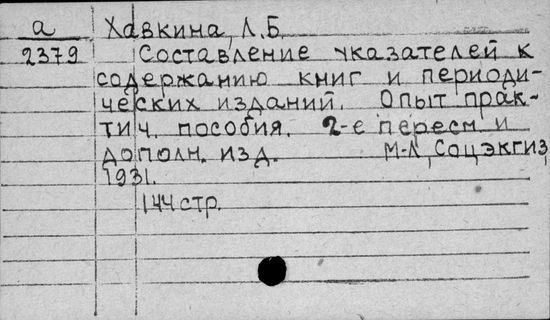 а Хавкина, Л.Б.
2379 Составление указателей к
содержанию книг и периоди-
ческих изданий. Опыт прак-
тич. пособия. 2-е пересм. и
дополн. изд. М-Л, Соцэкгиз,
1931.
144 стр.